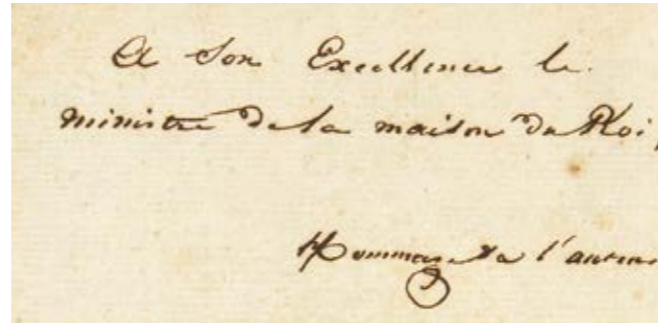 A Son Excellence le
ministre de la maison du Roi,
Hommage de l'auteur